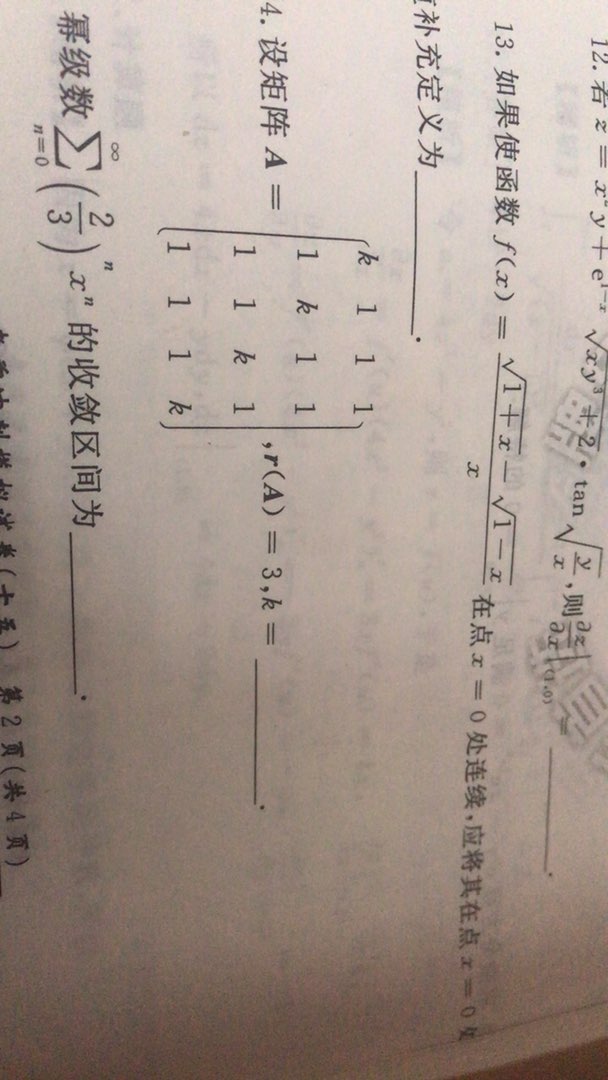 12. 若 z = x²y + e^{1-x} √(xy³ + 2) · tan √(y/x), 则 ∂z/∂x |(1,0) = ____.
13. 如果使函数 f(x) = (√(1+x) − √(1−x))/x 在点 x = 0 处连续,应将其在点 x = 0 处
补充定义为____.
4. 设矩阵 A = , r(A) = 3, k = ____.
k 1 1 1
1 k 1 1
1 1 k 1
1 1 1 k
幂级数 ∑_{n=0}^{∞} (2/3)^n x^n 的收敛区间为____.
(十五) 第 2 页 (共 4 页)